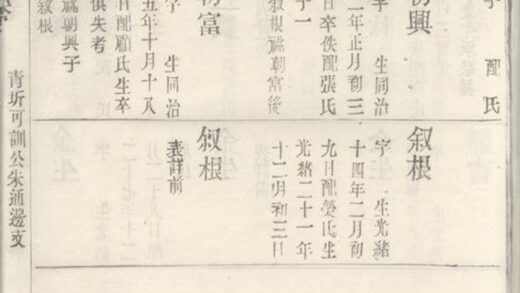 配氏
朝興
字 生同治
年正月初三
日卒佚配張氏
子一
叙根嗣朝富後
朝富
字 生同治
五年十月十八
日配顧氏生卒
俱失考
嗣朝興子
叙根
叙根
字 生光緒
十四年二月初
九日配榮氏生
光緒二十一年
十二月初三日
叙根
表詳前
青圻可訓公朱通邊支